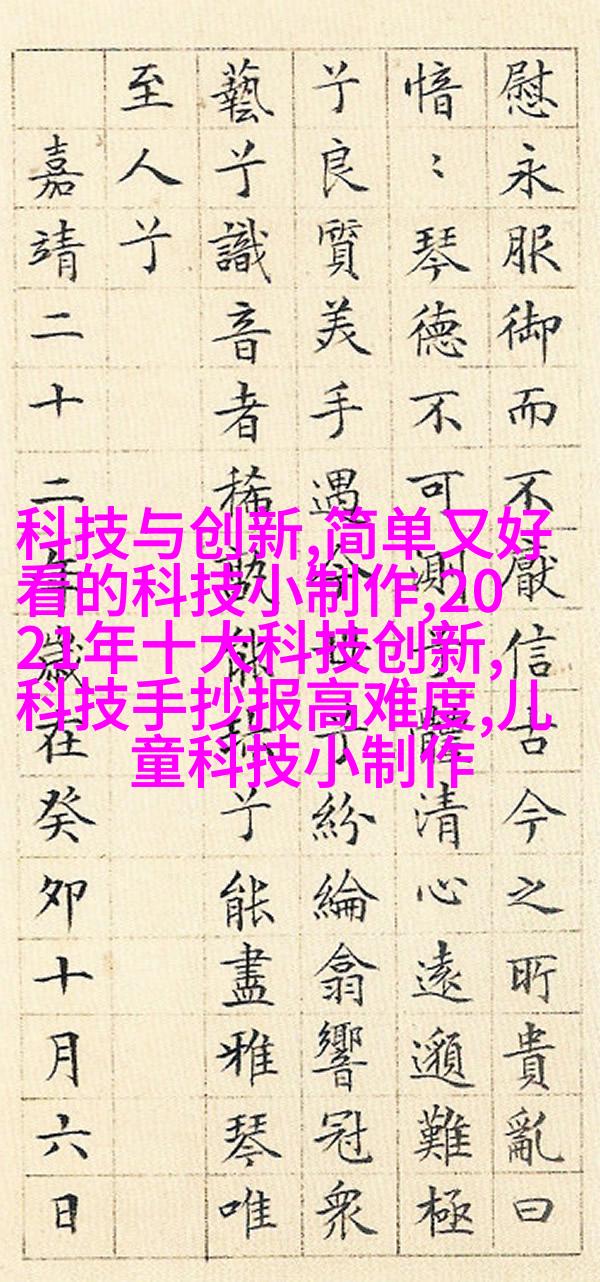 慰永服御而不厭信古今之所貴亂曰
愔〻琴德不可測兮體清心遠邈難極
兮良質美手遇今世兮紛綸翕響冠衆
藝兮識音者稀孰能珍兮能盡雅琴唯
至人兮
嘉靖二十二年歲在癸卯十月六日
科技与创新,简单又好
看的科技小制作,20
21年十大科技创新,
科技手抄报高难度,儿
童科技小制作